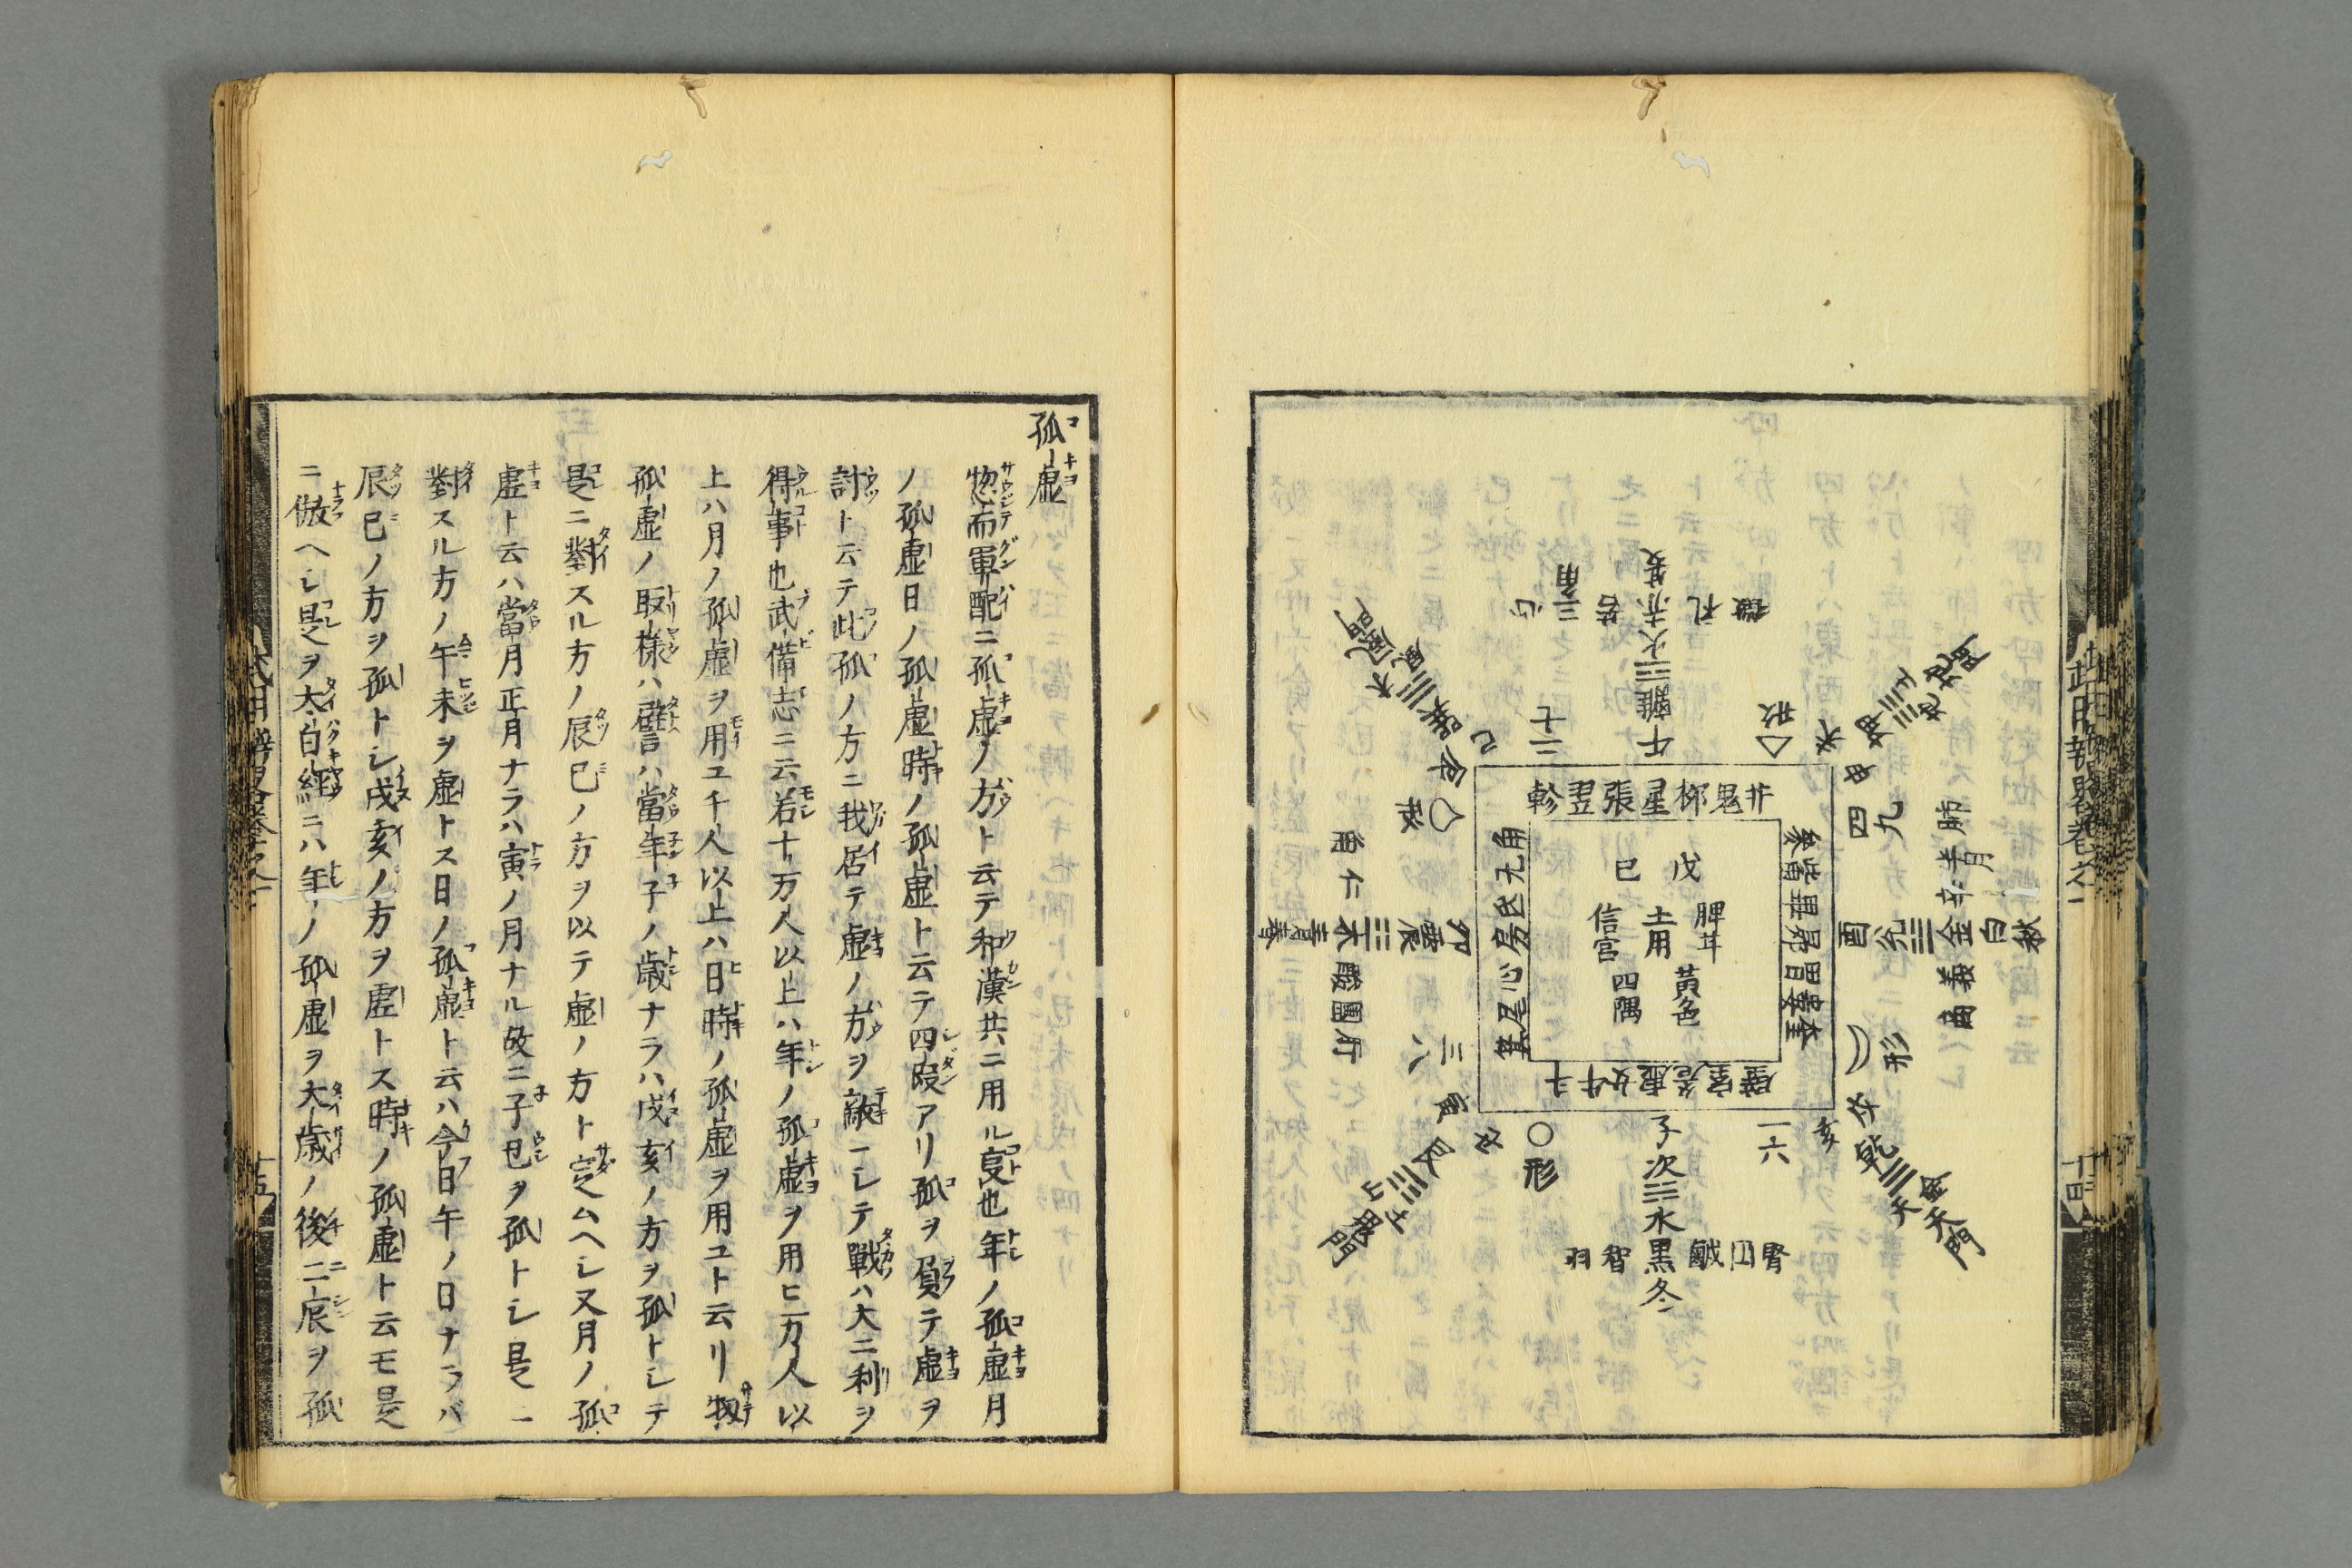 武用辨略巻之一
十四
夏
離火赤
午
二七
三角
苦
礼
徴
巳
巽
風
木
風門
未
申
坤
地
四九
酉
兌
金
白
秋
肺
辛
義
商
形
戌
亥
乾
天
金
天門
一六
子
次
水
黒
冬
腎
鹹
智
羽
○
形
丑
寅
艮
山
土
鬼門
三八
卯
震
木
青
春
肝
圓
酸
仁
角
辰
軫翌張星柳鬼井
參觜畢昴胃婁奎
壁室危虚女牛斗
角亢氐房心尾箕
戊
己
脾
土用
信
宮
黄色
四隅
孤虚
惣而軍配ニ孤虚ノ方ト云テ和漢共ニ用ル叓也年ノ孤虚月
ノ孤虚日ノ孤虚時ノ孤虚ト云テ四段アリ孤ヲ負テ虚ヲ
討ト云テ此孤ノ方ニ我居テ虚ノ方ヲ敵ニシテ戰ハ大ニ利ヲ
得事也武備志ニ云若十万人以上ハ年ノ孤虚ヲ用ヒ一万人以
上ハ月ノ孤虚ヲ用ユ千人以上ハ日時ノ孤虚ヲ用ユト云リ扨
孤虚ノ取様ハ譬ハ當年子ノ歳ナラハ戌亥ノ方ヲ孤トシテ
是ニ對スル方ノ辰巳ノ方ヲ以テ虚ノ方ト定ムヘシ又月ノ孤
虚ト云ハ當月正月ナラハ寅ノ月ナル故ニ子丑ヲ孤トシ是ニ
對スル方ノ午未ヲ虚トス日ノ孤虚ト云ハ今日午ノ日ナラバ
辰巳ノ方ヲ孤トシ戌亥ノ方ヲ虚トス時ノ孤虚ト云モ是
ニ倣ヘシ是ヲ太白經ニハ年ノ孤虚ヲ大歳ノ後二辰ヲ孤